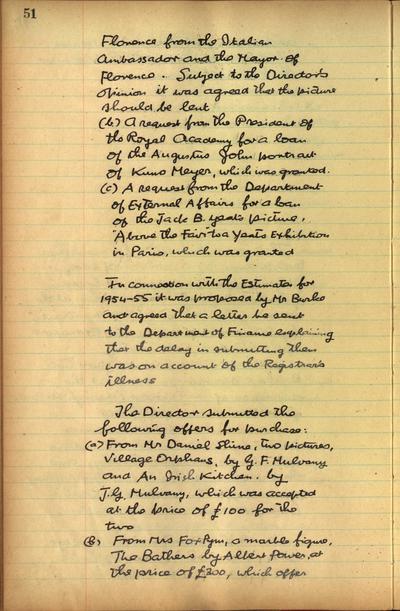 51
Florence from the Italian
Ambassador and the Mayor of
Florence. Subject to the Director's
opinion it was agreed that the picture
should be lent
(b) A request from the President of
the Royal Academy for a loan
of the Augustus John portrait
of Kuno Meyer, which was granted.
(c) A request from the Department
of External Affairs for a loan
of the Jack B. Yeats picture,
"Above the Fair" to a Yeats Exhibition
in Paris, which was granted
In connection with the Estimates for
1954-55 it was proposed by Mr Burke
and agreed that a letter be sent
to the Department of Finance explaining
that the delay in submitting them
was on account of the Registrar's
illness
The Director submitted the
following offers for purchase:
(a) From Mr Daniel Shine, two pictures,
Village Orphans, by G. F. Mulvany
and An Irish Kitchen, by
J.G. Mulvany, which was accepted
at the price of £100 for the
two
(b) From Mrs Fox Pym, a marble figure,
The Bathers by Albert Power, at
the price of £200, which offer